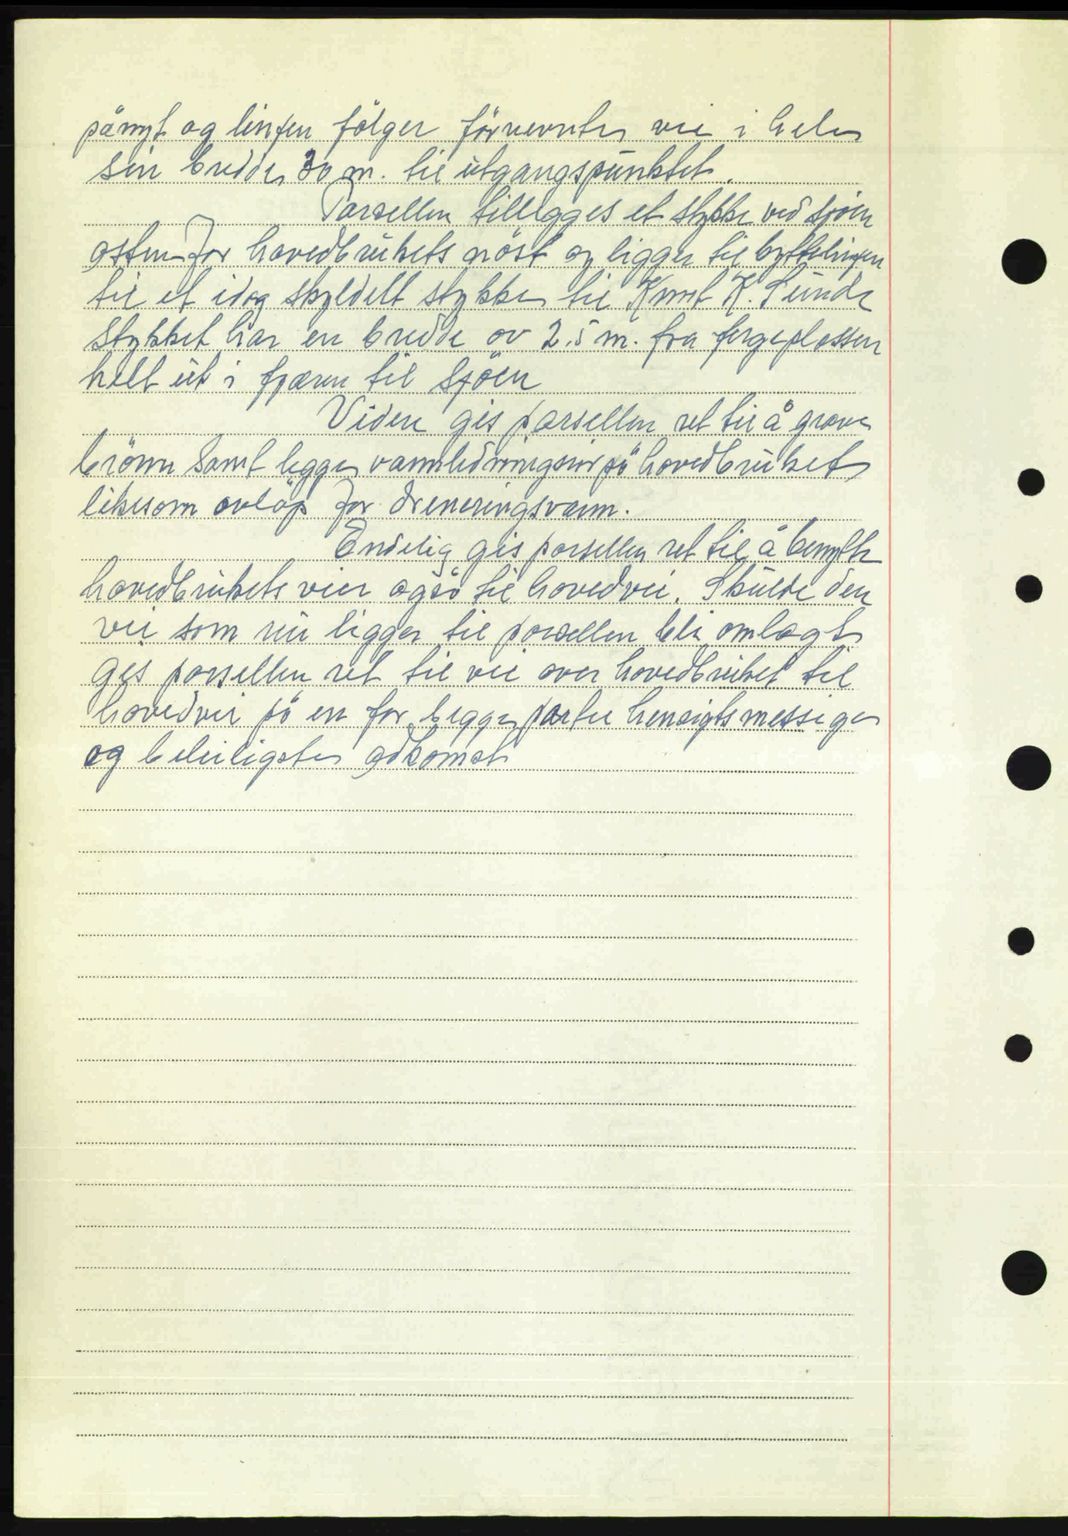 pånyt og linjen følger førnevnte vei i hele
sin bredde 30 m. til utgangspunktet.
Parsellen tillegges et stykke ved sjøen
østen for hovedbrukets nøst og ligger til byttelinjen
til et idag skyldelt stykke til Knut K. Sunde
Stykket har en bredde av 2.5 m. fra fergeplassen
helt ut i fjæren til sjøen
Videre gis parsellen ret til å grave
brønn samt legge vannledningsrør på hovedbruket
likesom avløp for dreneringsvann.
Endelig gis parsellen ret til å benytte
hovedbrukets veier også til hovedvei. Skulde den
vei som nu ligger til parsellen bli omlagt
gis parsellen ret til vei over hovedbruket til
hovedvei på en for begge parter hensigtsmessige
og beleiligste adkomst